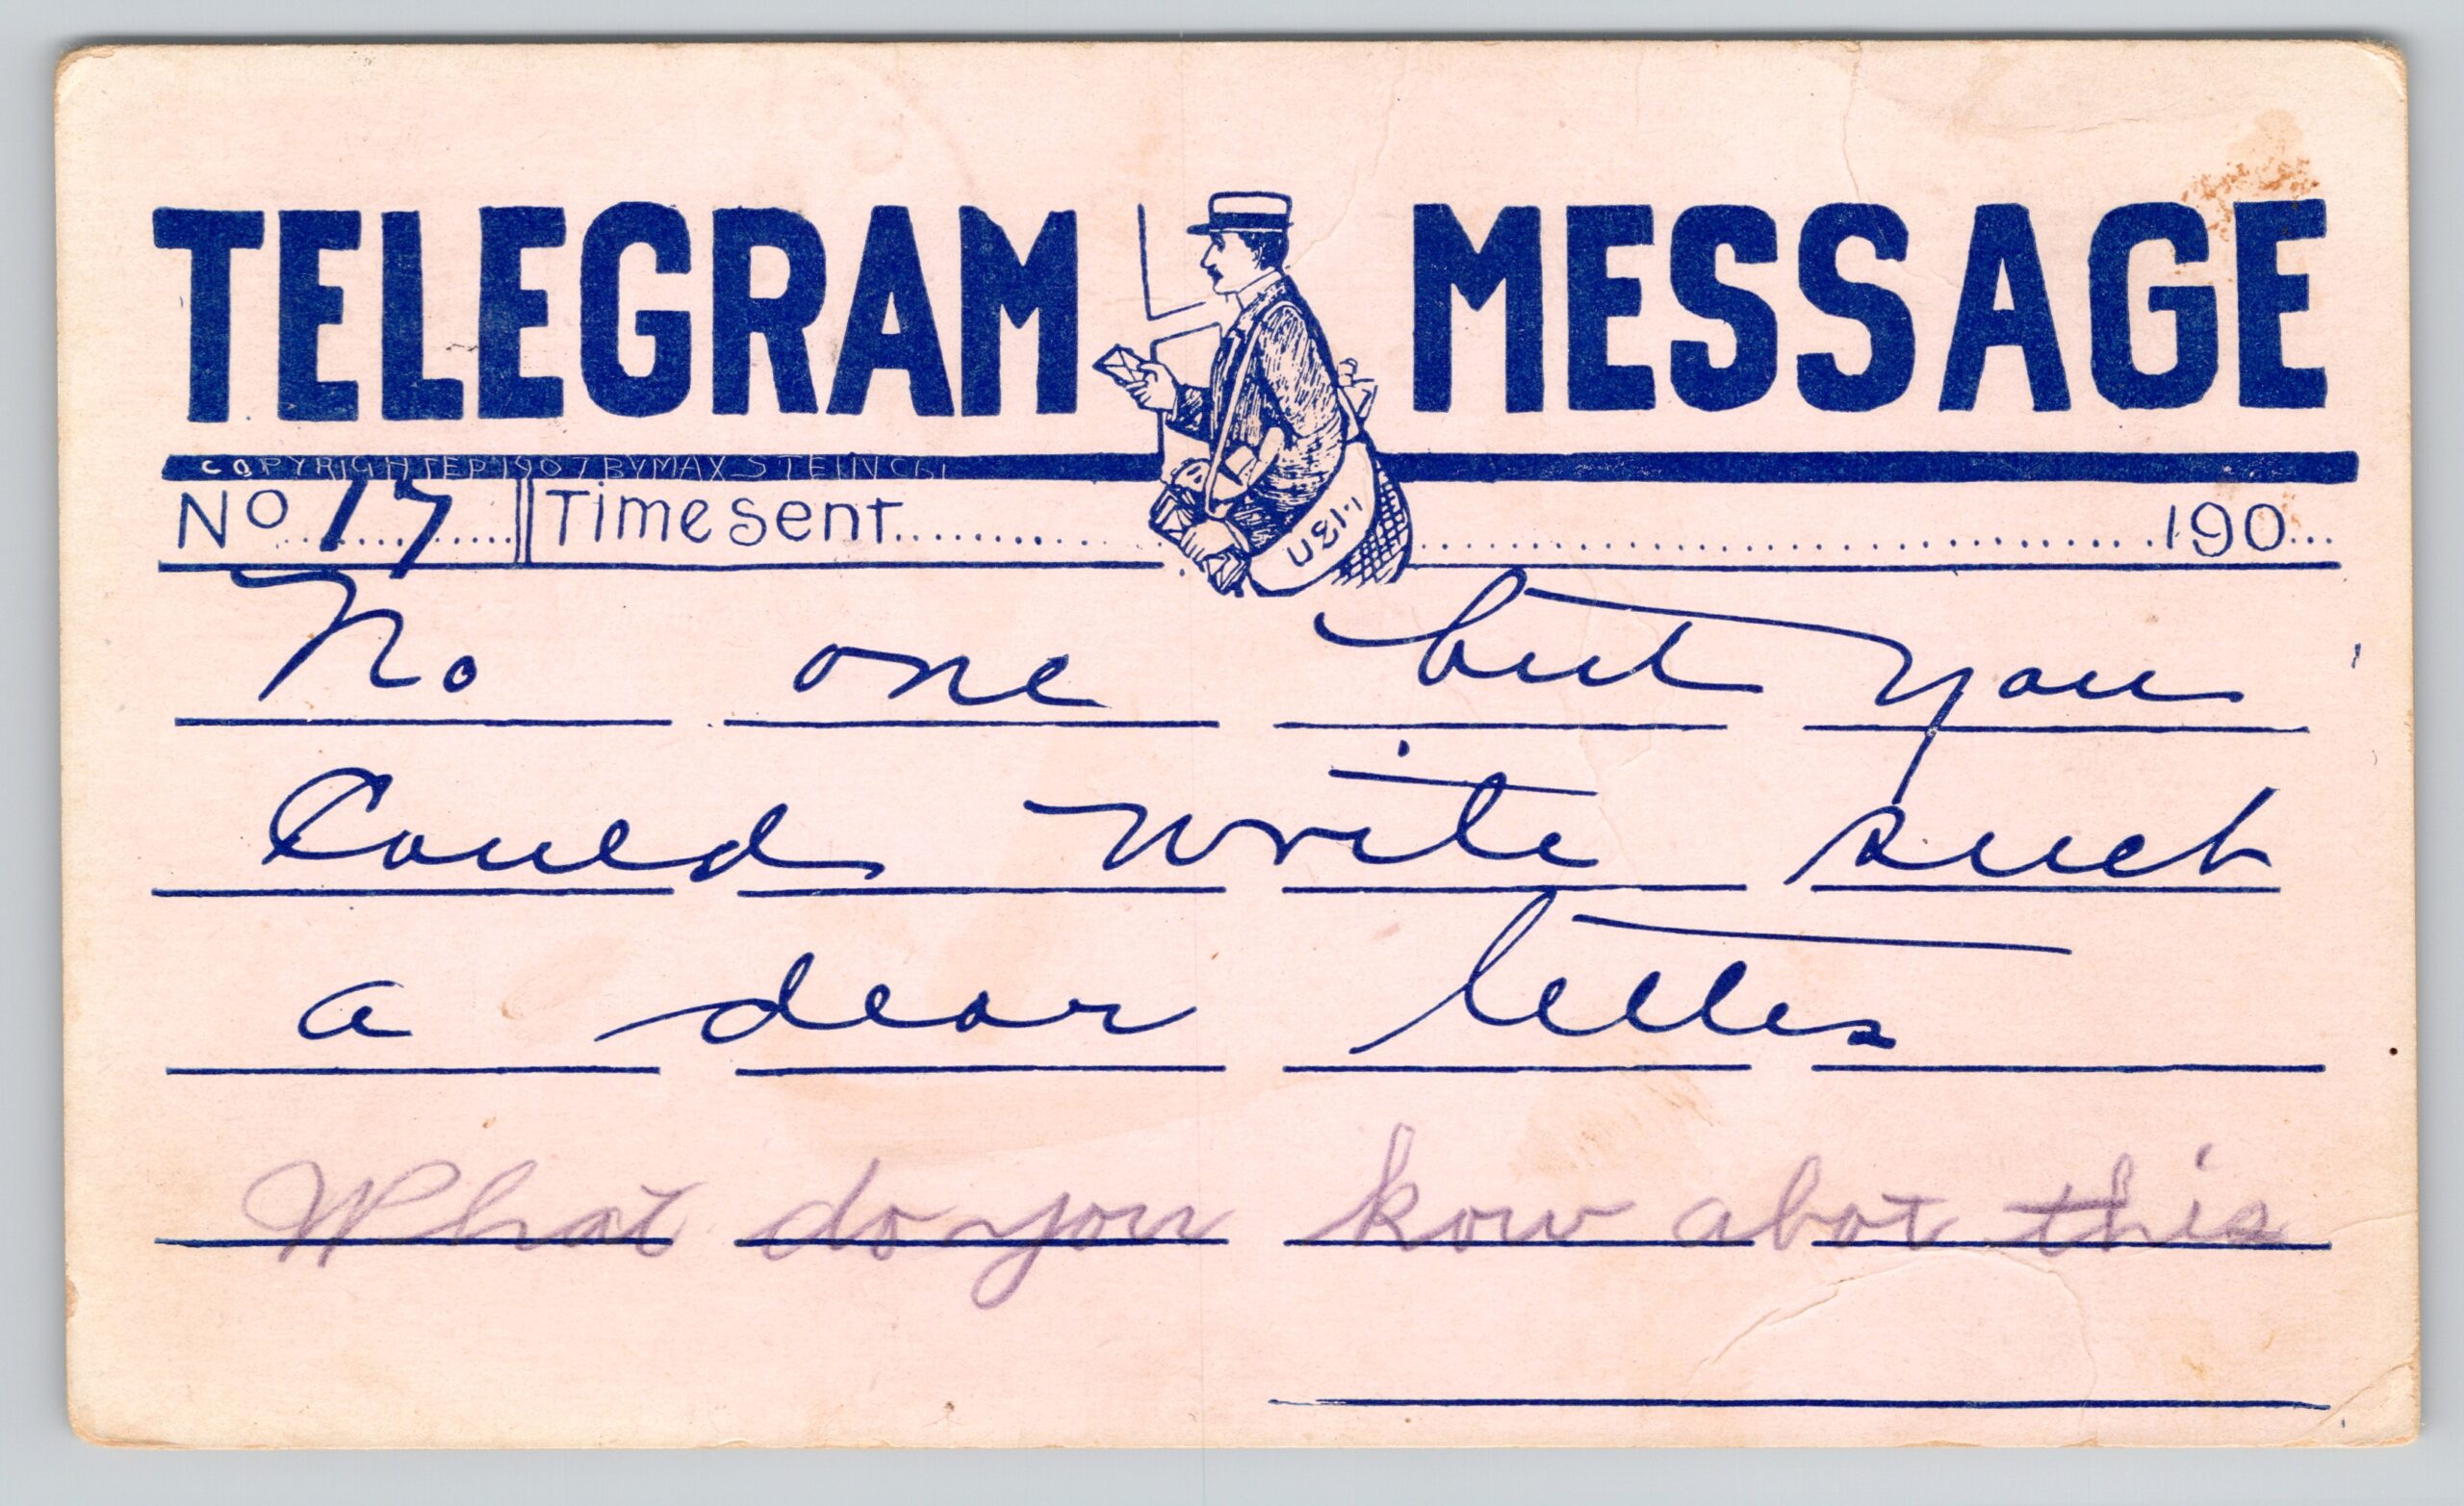 TELEGRAM MESSAGE
COPYRIGHTED 1907 BY MAX STEIN CHI
No. 17 Time sent 190
U.S.M
No one but you
Could write such
a dear letter
What do you kow abot this